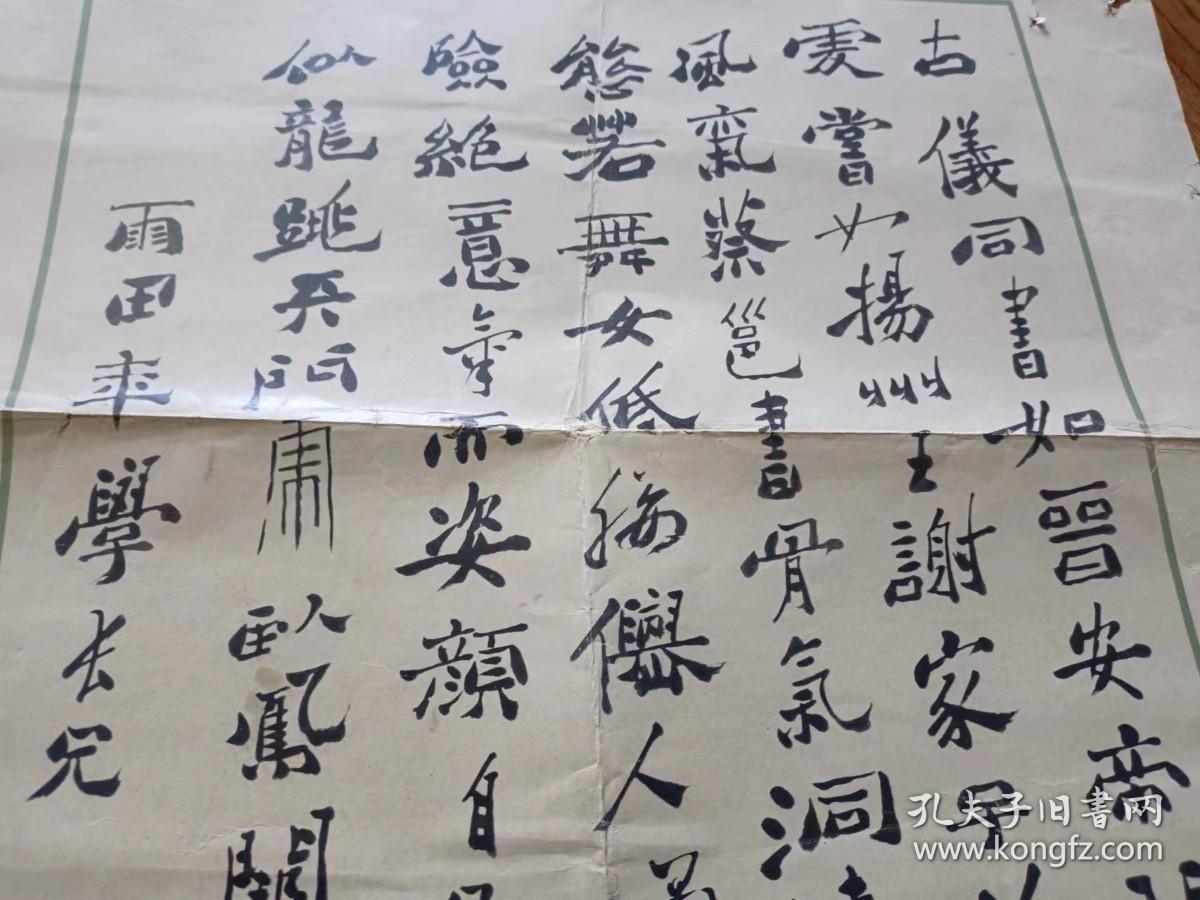 古儀同書如晉安帝
虔嘗如揚州王謝家
風氣蔡邕書骨氣洞
態若舞女低腰僊人
險絕意氣而姿顏自
似龍跳天門虎臥鳳闕
雨田年學長兄
孔夫子旧书网
www.kongfz.com